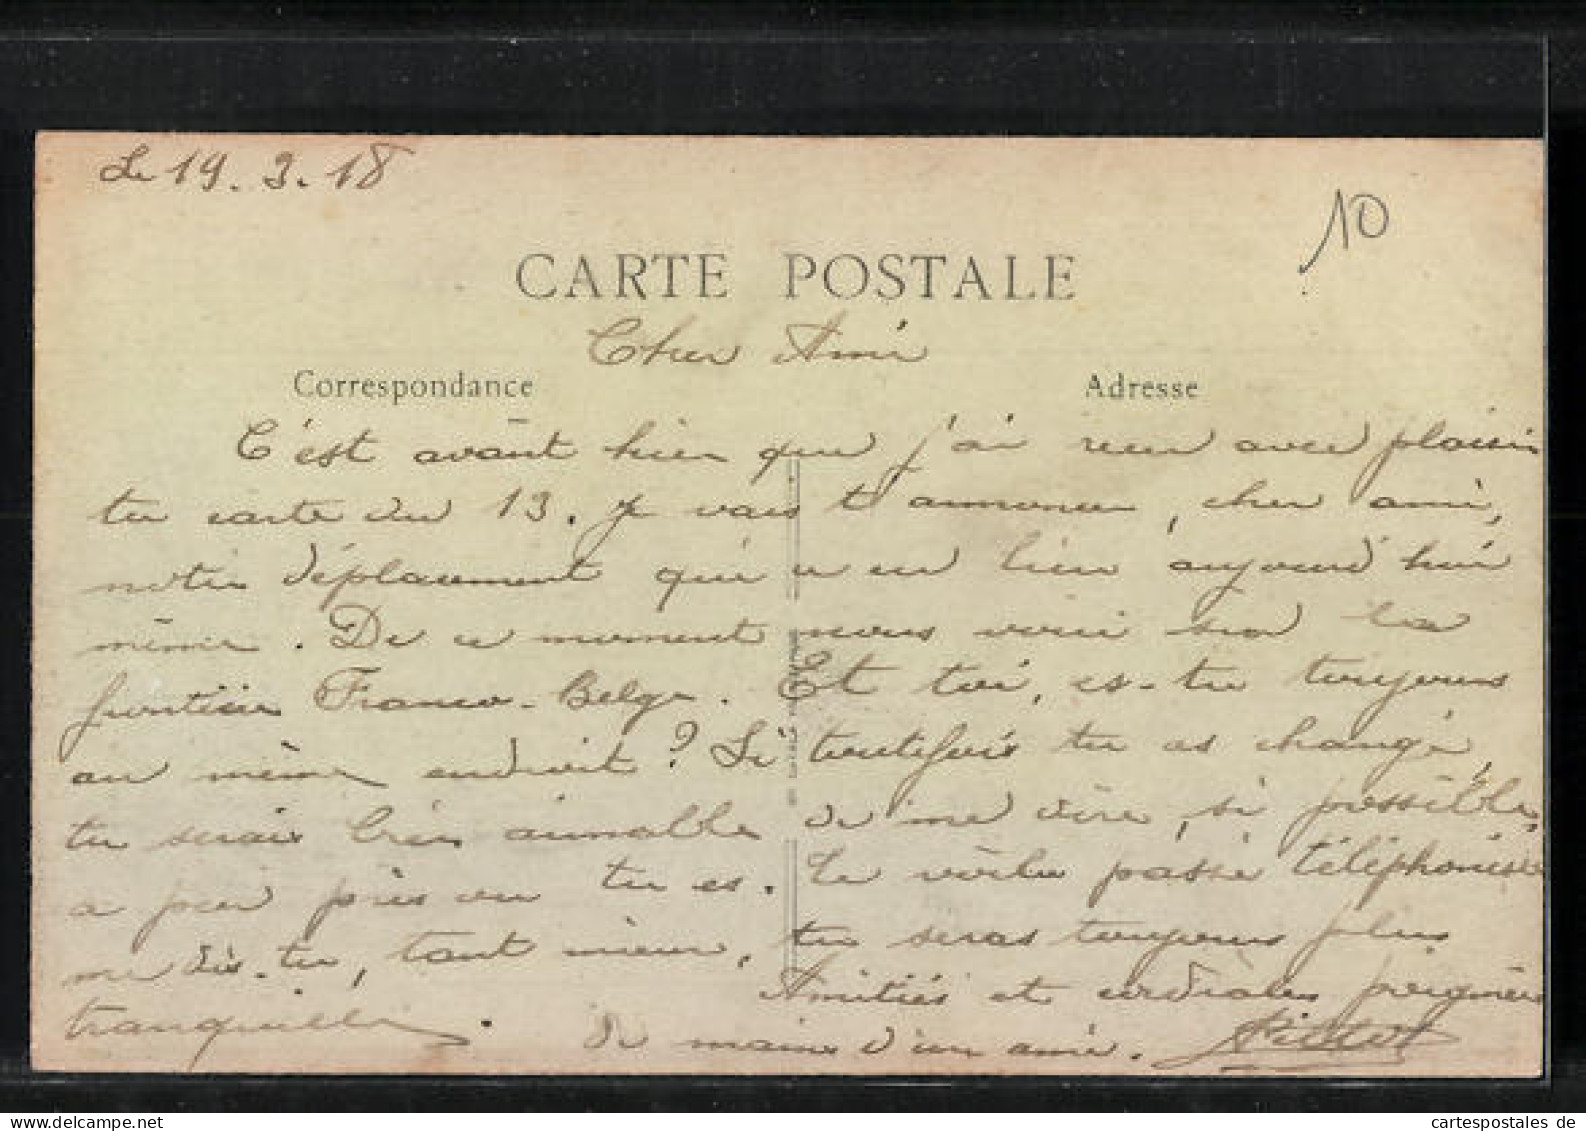 Le 19.3.18
10
CARTE POSTALE
Cher Ami
Correspondance
Adresse
C'est avant hier que j'ai reçu avec plaisir
ta carte du 13. Je vais t'annoncer, cher ami,
notre déplacement qui a eu lieu aujourd'hui
même. De ce moment nous voici sur la
frontière Franco-Belge. Et toi, es-tu toujours
au même endroit? Si toutefois tu as changé,
tu serais bien aimable de me dire, si possible,
a peu près ou tu es. Te voilu passé téléphoniste
me dis-tu, tant mieux, tu seras toujours plus
tranquille. Amitiés et cordiales poignées
de mains d'un ami.
cartespostales de